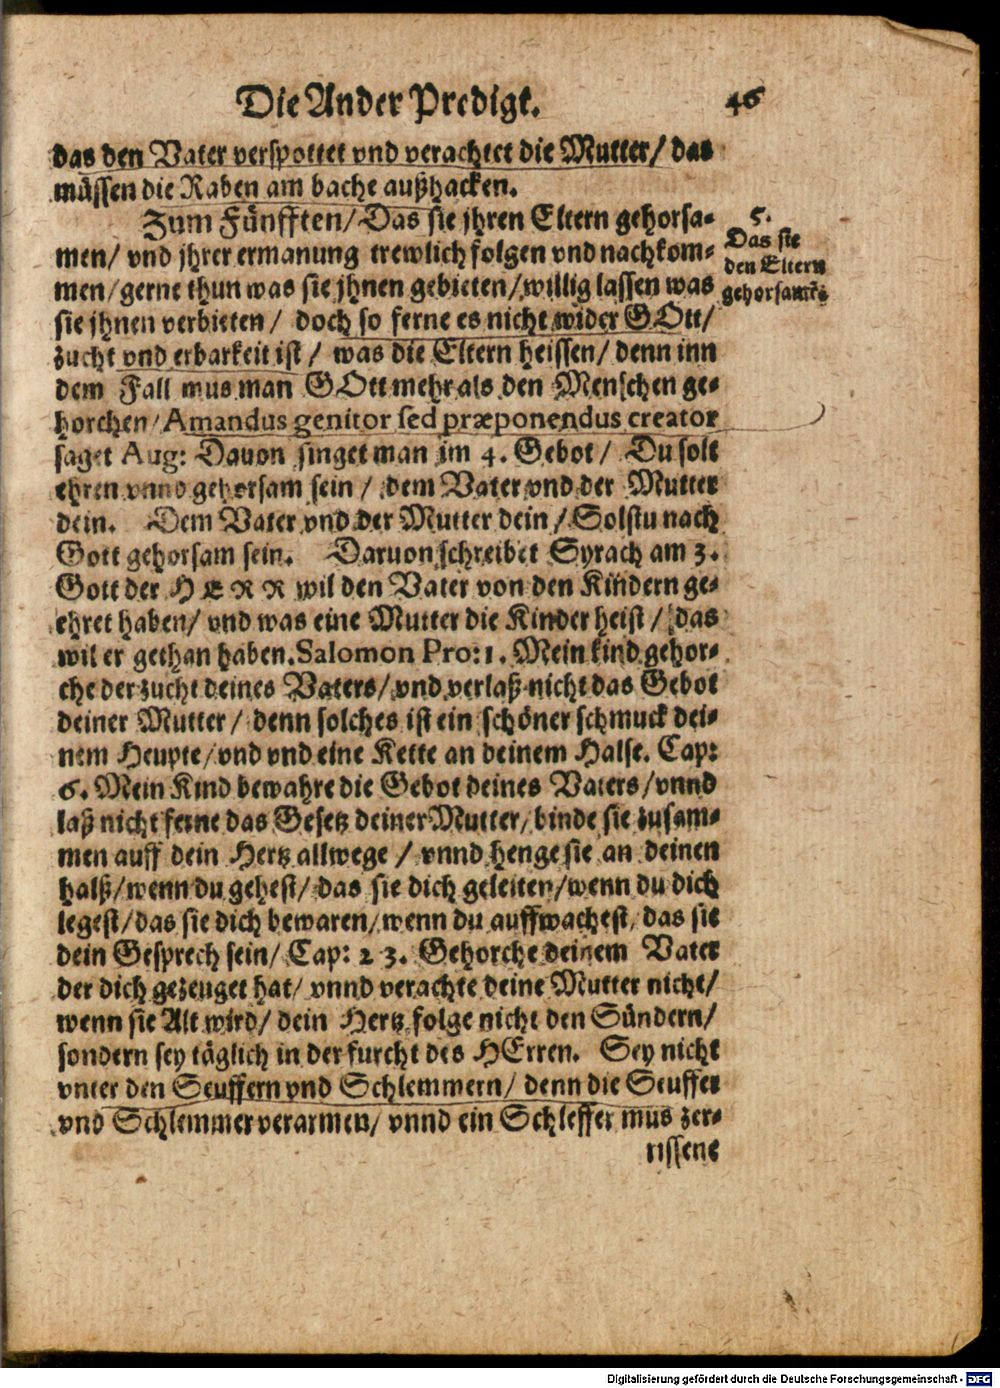 Die Ander Predigt.
46
das den Vater verspottet vnd verachtet die Mutter/ das
müssen die Raben am bache außhacken.
Zum Fünfften/ Das sie jhren Eltern gehorsa-
men/ vnd jhrer ermanung trewlich folgen vnd nachkom-
men/ gerne thun was sie jhnen gebieten/ willig lassen was
sie jhnen verbieten/ doch so ferne es nicht wider GOtt/
zucht vnd erbarkeit ist/ was die Eltern heissen/ denn inn
dem Fall mus man GOtt mehr als den Menschen ge-
horchen/ Amandus genitor sed præponendus creator
saget Aug: Dauon singet man im 4. Gebot/ Du solt
ehren vnnd gehorsam sein/ dem Vater vnd der Mutter
dein. Dem Vater vnd der Mutter dein/ Solstu nach
Gott gehorsam sein. Daruon schreibet Syrach am 3.
Gott der HERR wil den Vater von den Kindern ge-
ehret haben/ vnd was eine Mutter die Kinder heist/ das
wil er gethan haben. Salomon Pro: 1. Mein kind gehor-
che der zucht deines Vaters/ vnd verlaß nicht das Gebot
deiner Mutter/ denn solches ist ein schöner schmuck dei-
nem Heupte/ vnd vnd eine Kette an deinem Halse. Cap:
6. Mein Kind bewahre die Gebot deines Vaters/ vnnd
laß nicht ferne das Gesetz deiner Mutter/ binde sie zusam-
men auff dein Hertz allwege/ vnnd henge sie an deinen
halß/ wenn du gehest/ das sie dich geleiten/ wenn du dich
legest/ das sie dich bewaren/ wenn du auffwachest, das sie
dein Gesprech sein/ Cap: 23. Gehorche deinem Vater
der dich gezeuget hat/ vnnd verachte deine Mutter nicht/
wenn sie Alt wird/ dein Hertz folge nicht den Sündern/
sondern sey täglich in der furcht des HErren. Sey nicht
vnter den Seuffern vnd Schlemmern/ denn die Seuffer
vnd Schlemmer verarmen/ vnnd ein Schleffer mus zer-
rissene
5.
Das sie
den Eltern
gehorsamē
Digitalisierung gefördert durch die Deutsche Forschungsgemeinschaft - DFG